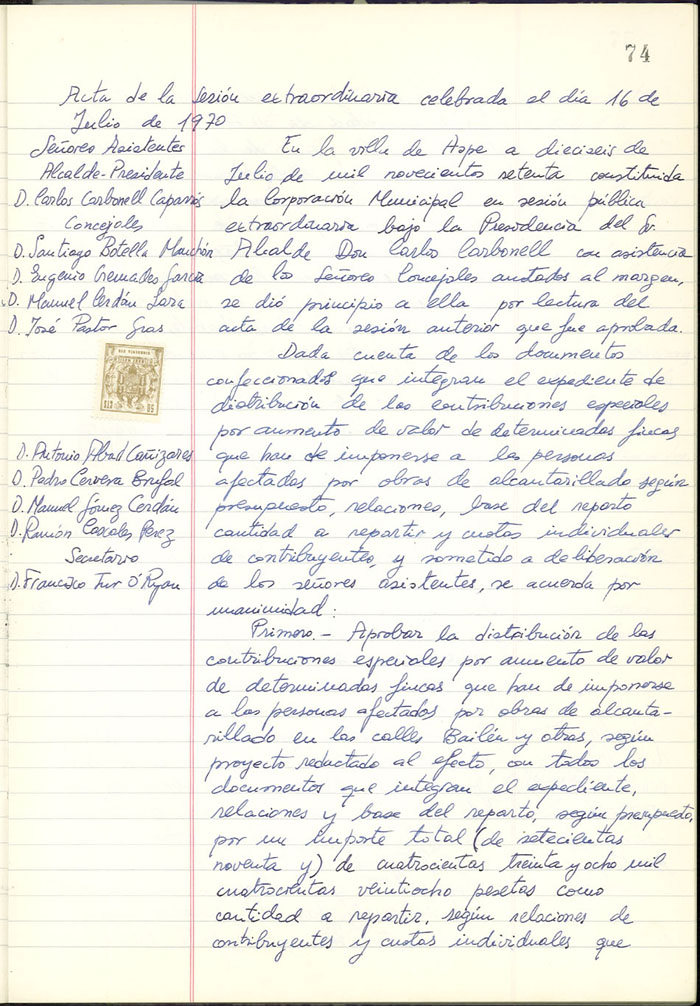 74
Acta de la sesión extraordinaria celebrada el día 16 de
Julio de 1970
Señores Asistentes
Alcalde-Presidente
D. Carlos Carbonell Caparrós
Concejales
D. Santiago Botella Manchón
D. Eugenio Cremades García
D. Manuel Cerdán Jara
D. José Pastor Gras
D. Antonio Abad Cañizares
D. Pedro Cervera Brufal
D. Manuel Gómez Cerdán
D. Ramón Cascales Perez
Secretario
D. Francisco Tur O'Ryan
En la villa de Aspe a dieciseis de
Julio de mil novecientos setenta constituida
la Corporación Municipal en sesión pública
extraordinaria bajo la Presidencia del Sr.
Alcalde Don Carlos Carbonell con asistencia
de los Señores Concejales anotados al margen,
se dió principio a ella por lectura del
acta de la sesión anterior que fue aprobada.
Dada cuenta de los documentos
confeccionados que integran el expediente de
distribución de las contribuciones especiales
por aumento de valor de determinadas fincas
que han de imponerse a las personas
afectadas por obras de alcantarillado según
presupuesto, relaciones, base del reparto
cantidad a repartir y cuotas individuales
de contribuyentes, y sometido a deliberación
de los señores asistentes, se acuerda por
unanimidad:
Primero.- Aprobar la distribución de las
contribuciones especiales por aumento de valor
de determinadas fincas que han de imponerse
a las personas afectados por obras de alcanta-
rillado en las calles Bailén y otras, según
proyecto redactado al efecto, con todos los
documentos que integran el expediente,
relaciones y base del reparto, según presupuesto,
por un importe total (de setecientas
noventa y) de cuatrocientas treinta y ocho mil
cuatrocientas veintiocho pesetas como
cantidad a repartir, según relaciones de
contribuyentes y cuotas individuales que